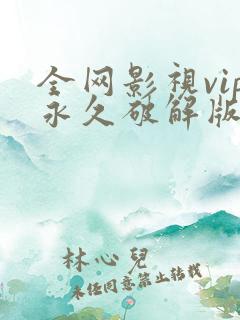 全网影視vip
永久破解版
林心兒
未经同意禁止转载